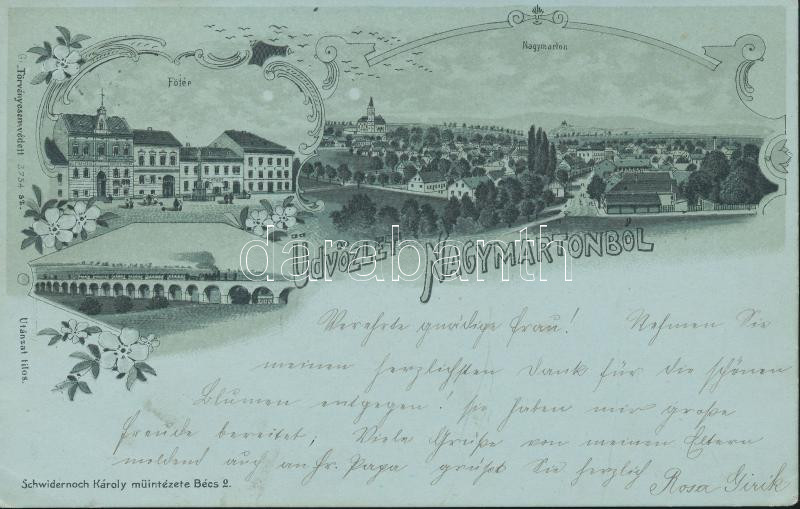 Főtér
Nagymarton
Törvényesen védett 3754 sz.
Utánzat tilos.
ÜDVÖZLET NAGYMARTONBÓL
darabanth
Verehrte gnädige Frau! Nehmen Sie
meinen herzlichsten Dank für die schönen
Blumen entgegen! sie haben mir große
Freude bereitet; Viele Grüße von meinen Eltern
meldend auch an Hr. Papa grüßt Sie herzlich
Rosa Girik
Schwidernoch Károly müintézete Bécs 2.